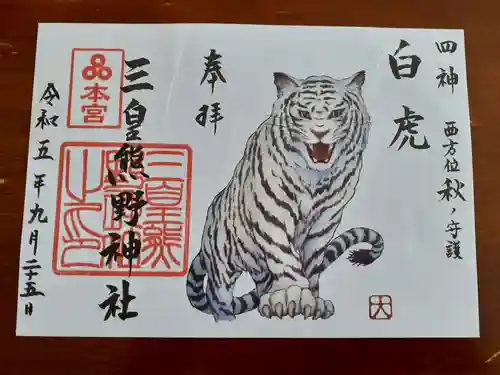 四神
西方位 秋ノ守護
白虎
奉拝
三皇熊野神社
本宮
令和五年九月二十五日